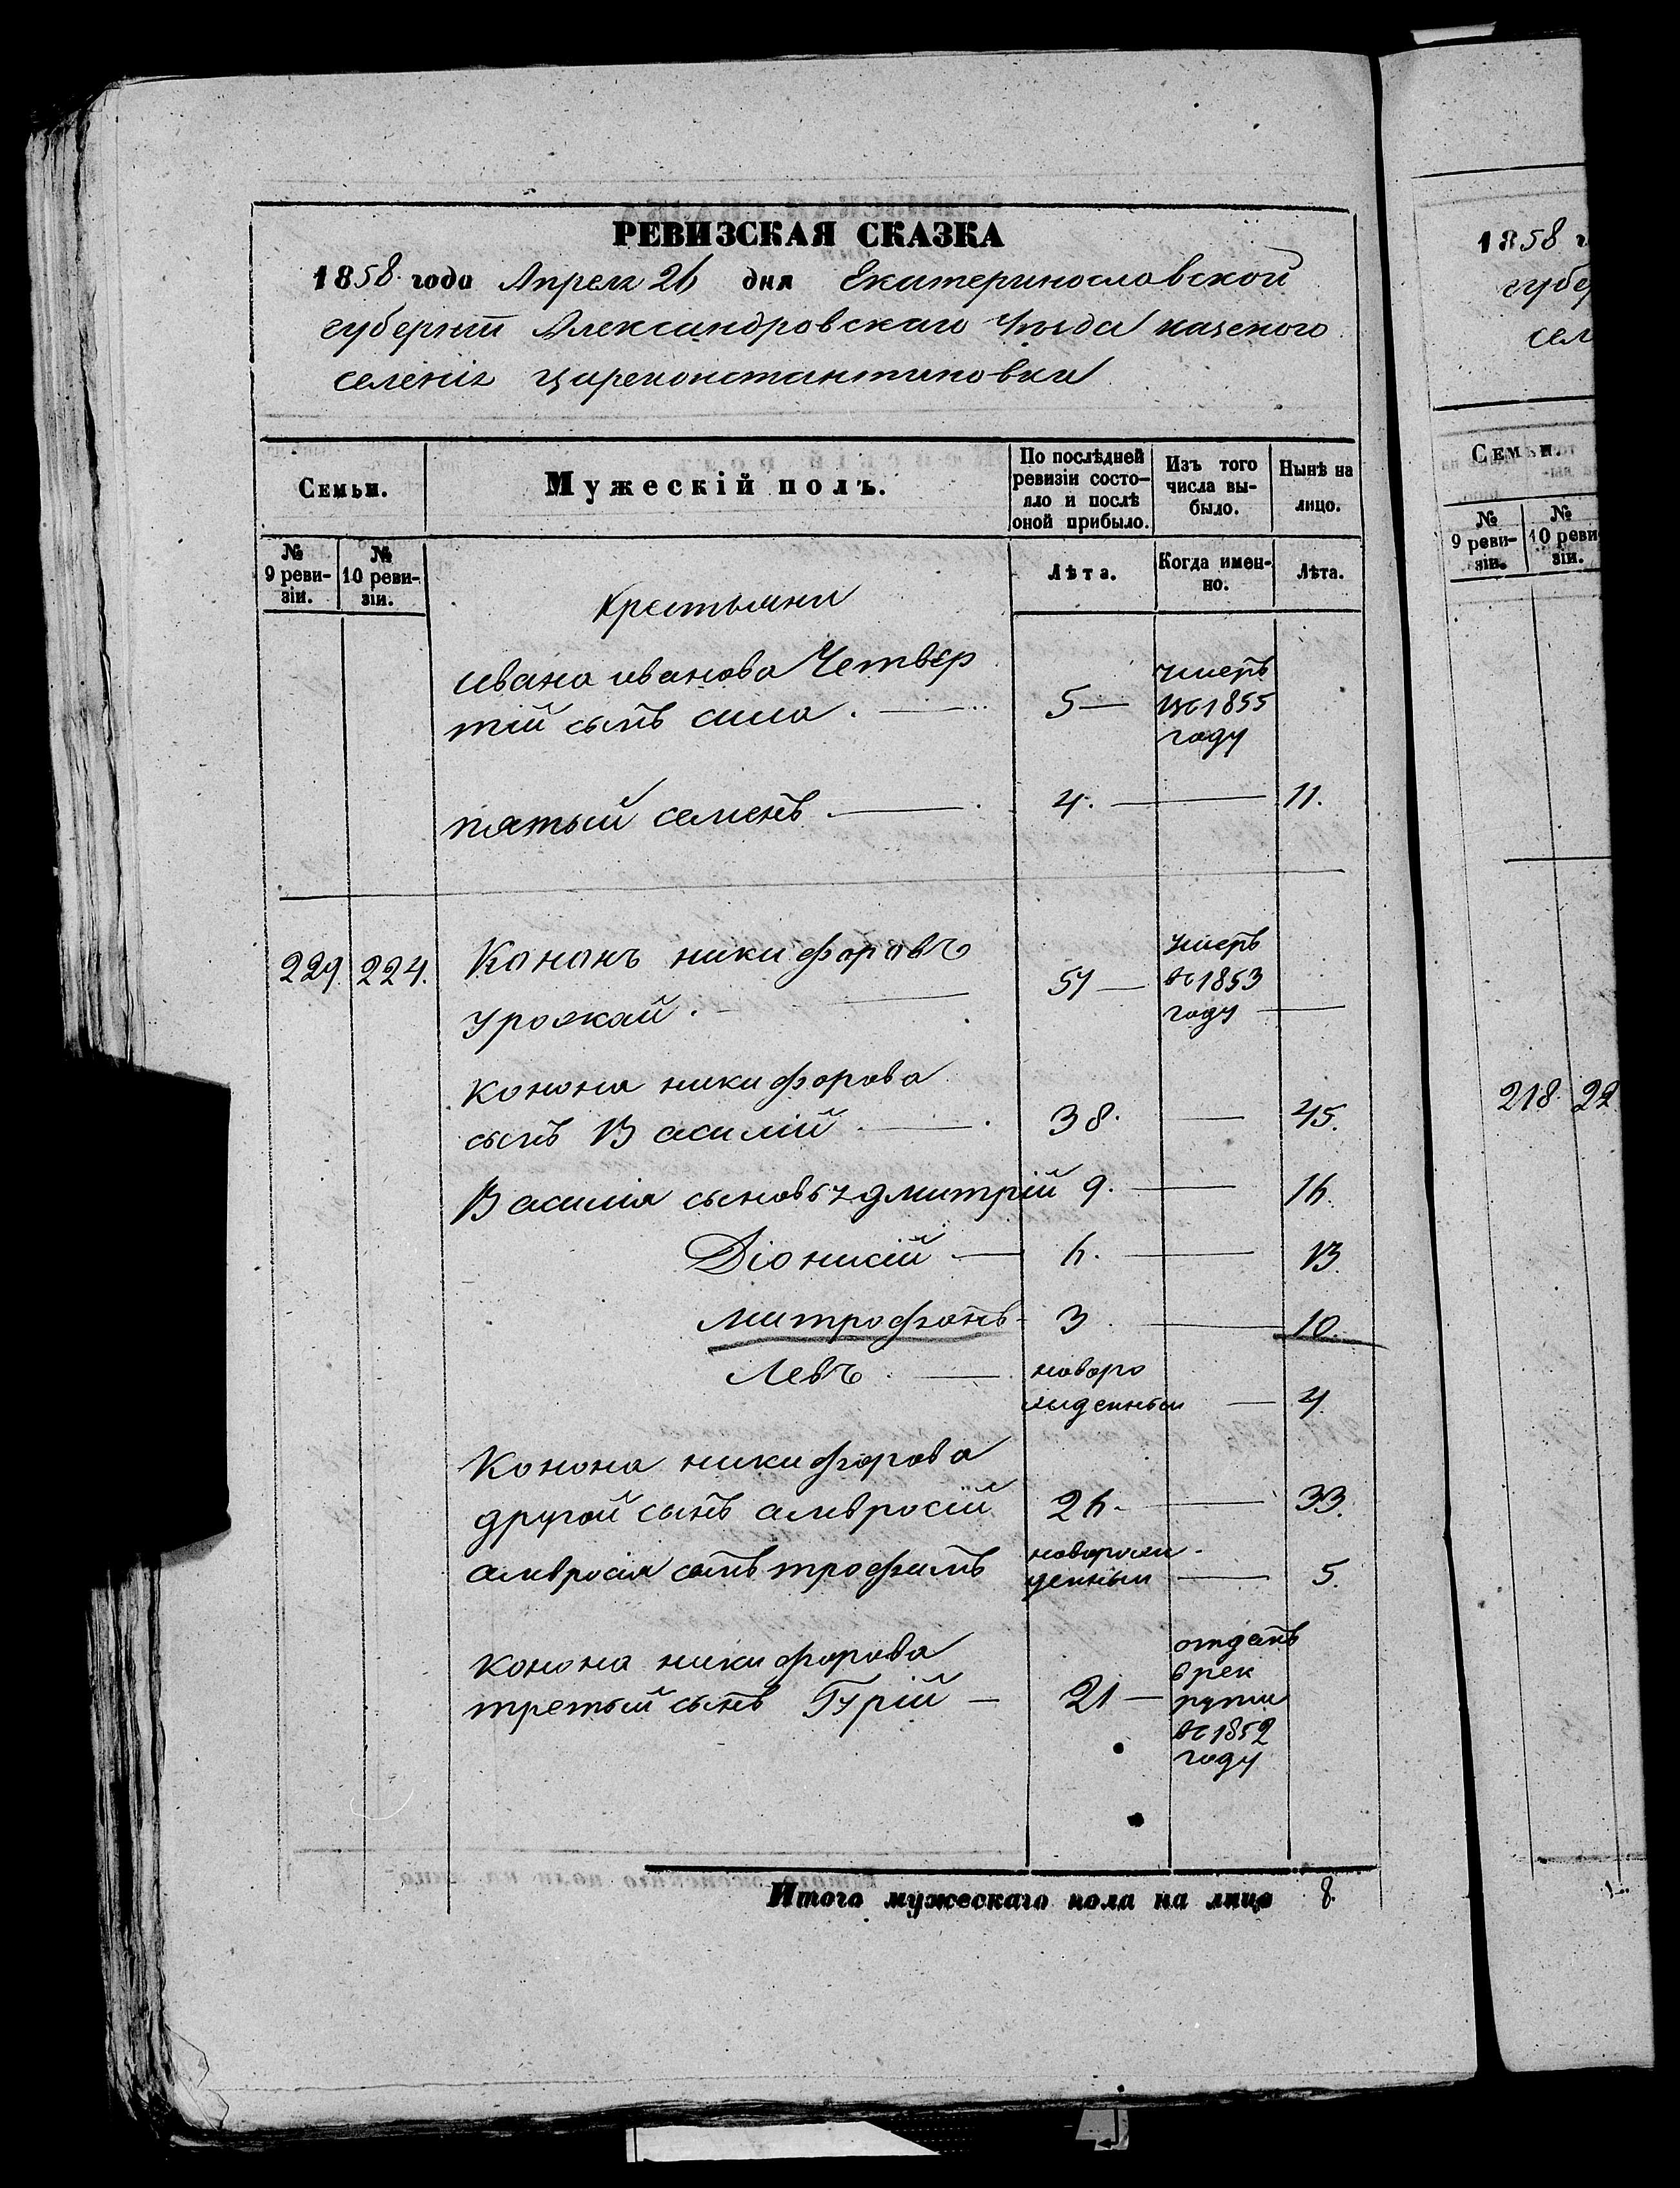 РЕВИЗСКАЯ СКАЗКА
1858 года Апреля 26 дня Екатеринославской
губерніи Александровскаго Уѣзда казеного
селенія Цареконстантиновки
Семьи.
Мужескій полъ.
По послѣдней
ревизіи состо-
яло и послѣ
оной прибыло.
Изъ того
числа вы-
было.
Нынѣ на
лицо.
№
9 реви-
зіи.
№
10 реви-
зіи.
Лѣта.
Когда имен-
но.
Лѣта.
Крестьяни
Ивана иванова Четвер
тій сынъ сила . 5 — умеръ
въ 1855
году
пятый семенъ 4. — 11.
229 224. Кононъ никифоровъ
урожай. 51 — умеръ
въ 1853
году —
Конона никифорова
сынъ Василій 38. — 45.
Василія сыновья 1 дмитрій 9. — 16.
Діонисій — 6. — 13
митрофанъ 3. — 10.
Левъ — новоро
жденный — 4
Конона никифорова
другой сынъ амвросій 26. — 33.
амвросія сынъ трофимъ новорож-
денный — 5.
Конона никифорова
третый сынъ Гурій — 21 — отданъ
в рек
руты
въ 1852
году
Итого мужескаго пола на лицо 8.
1858 г
губер
сел
Семьи.
№
9 реви-
зіи.
№
10 реви
зіи.
218 22